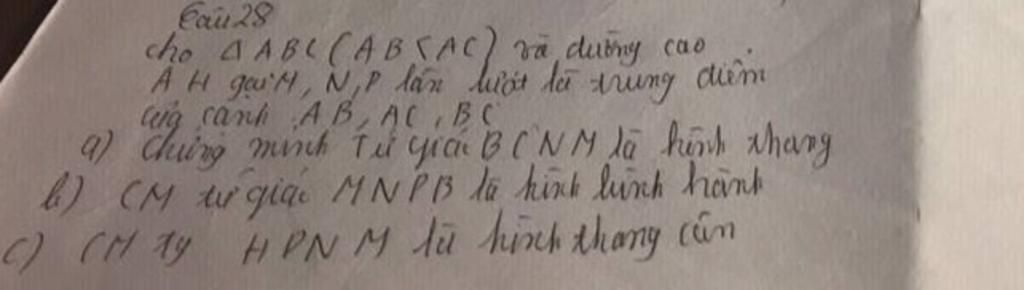 Câu 28
cho △ ABC (AB < AC) và đường cao
AH gọi M, N, P lần lượt là trung điểm
của cạnh AB, AC, BC
a) Chứng minh Tứ giác BCNM là hình thang
b) CM tứ giác MNPB là hình bình hành
c) CM Tg HPNM là hình thang cân